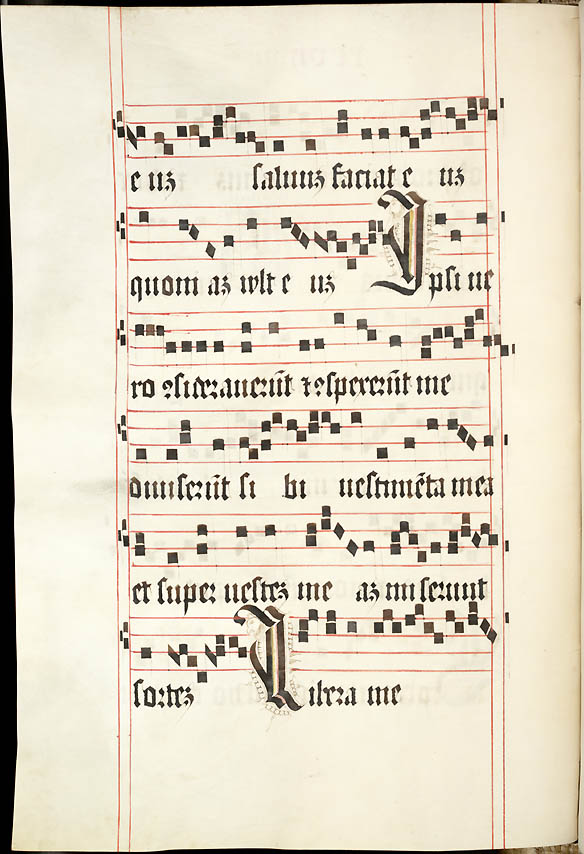 e uʒ saluuʒ faciat e uʒ
quoni aʒ wlt e uʒ Ipsi ue
ro ꝯsiderauerūt ⁊ ꝯspexerūt me
diuiserūt si bi uestimēta mea
et super uesteʒ me aʒ miserunt
sorteʒ Libera me